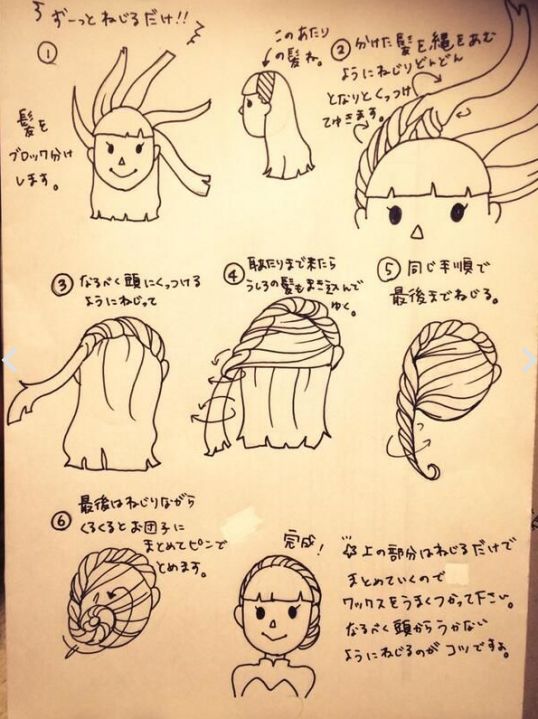 ずーっとねじるだけ!!
①
髪を
ブロック分け
します。
このあたり
の髪ね。
② 分けた髪を縄をあむ
ようにねじりどんどん
となりとくっつけ
てゆきます。
③ なるべく頭にくっつける
ようにねじって
④
まで来たら
うしろの髪もまき込んで
ゆく。
⑤ 同じ手順で
最後までねじる。
⑥ 最後はねじりながら
くるくるとお団子に
まとめてピンで
とめます。
完成!
上の部分はねじるだけで
まとめていくので
ワックスをうまくつかって下さい。
なるべく頭からうかない
ようにねじるのがコツですよ。